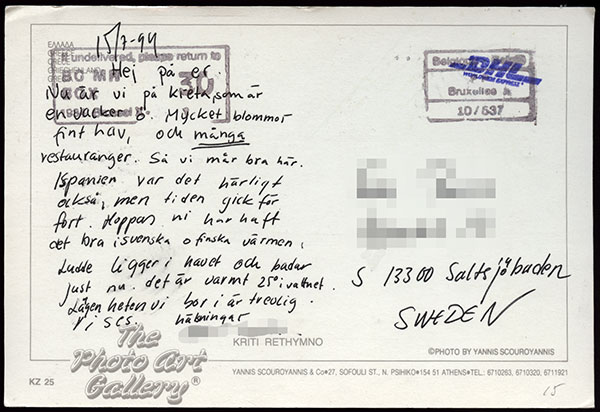 ΕΛΛΑΔΑ
GREECE
GRIECHENLAND
15/7-94
If undelivered, please return to
BC MM
30
Hej på er.
Nu är vi på Kreta, som är
en vacker ö. Mycket blommor
fint hav, och många
restauranger. Så vi mår bra här.
I spanien var det härligt
också, men tiden gick för
fort. Hoppas ni har haft
det bra i svenska o finska värmen.
Ludde ligger i havet och badar
just nu. det är varmt 25° i vattnet.
Lägenheten vi bor i är trevlig.
Vi ses. hälsningar
DHL
WORLDWIDE EXPRESS
Bruxelles X
10/537
S 13300 Saltsjöbaden
SWEDEN
The
Photo Art
Gallery®
KRITI RETHYMNO
©PHOTO BY YANNIS SCOUROYANNIS
KZ 25
YANNIS SCOUROYANNIS & Co•27, SOFOULI ST., N. PSIHIKO•154 51 ATHENS•TEL.: 6710263, 6710320, 6711921
15